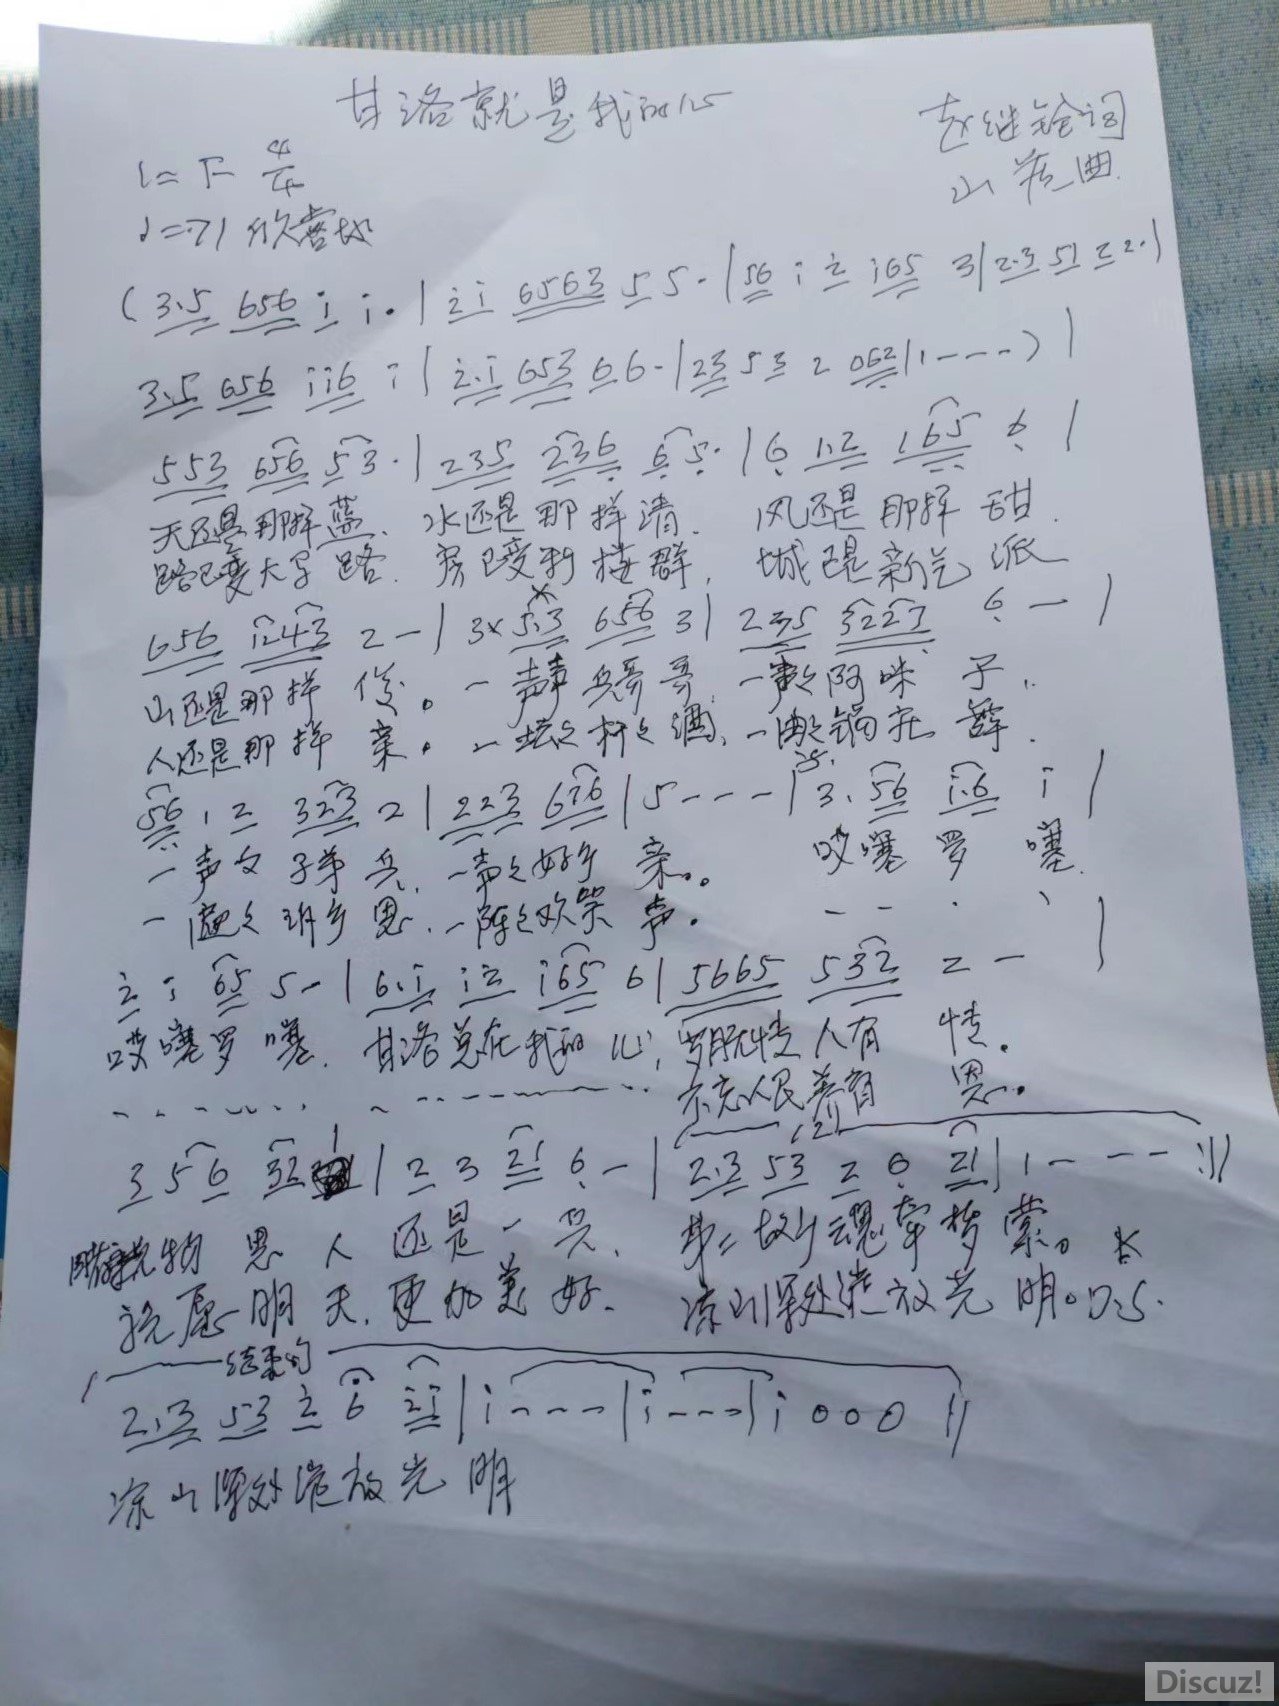 甘洛就是我的心
赵继铨词
山茂曲
1=F 4/4
♩=71 欣喜地
(3.5 656 i i.|2i 6563 5 5.|56 i 2 i65 3|2.3 51 2 2.|
3.5 656 ii6 i|2.i 653 6 6.|23 5 3 2 062|1----)|
553 656 53.|235 236 6 5.|6 12 165 6|
天还是那样蓝、水还是那样清、风还是那样甜.
路已变大字路.房已变新楼群,城已是新气派
656 1243 2-|3x 5.3 656 3|235 3227 6-|
山还是那样俊。一声声兵哥哥,一声々阿咪子,
人还是那样亲。一坛々杆々酒、一曲々锅庄舞.
56 1 2 323 2|223 676|5---|3. 56 i.6 i|
一声々子弟兵,一声々好乡亲。 哎噻罗噻.
一处々班乡思.一阵々欢笑声。
2 i 65 5-|6.i i2 i65 6|5665 532 2-|
哎噻罗噻.甘洛总在我的心,多胱情人有情。
不忘人民养育恩。
3 5 6 32 1|2 3 21 6-|2.3 53 2 6 21|1---:||
物思人还是一兵、故乡魂牵梦萦。
祝愿明天,更加美好.凉山深处遍放光明。D.S.
结束句
2.3 53 2 6 2i|i---|i---|i000||
凉山深处遍放光明
Discuz!